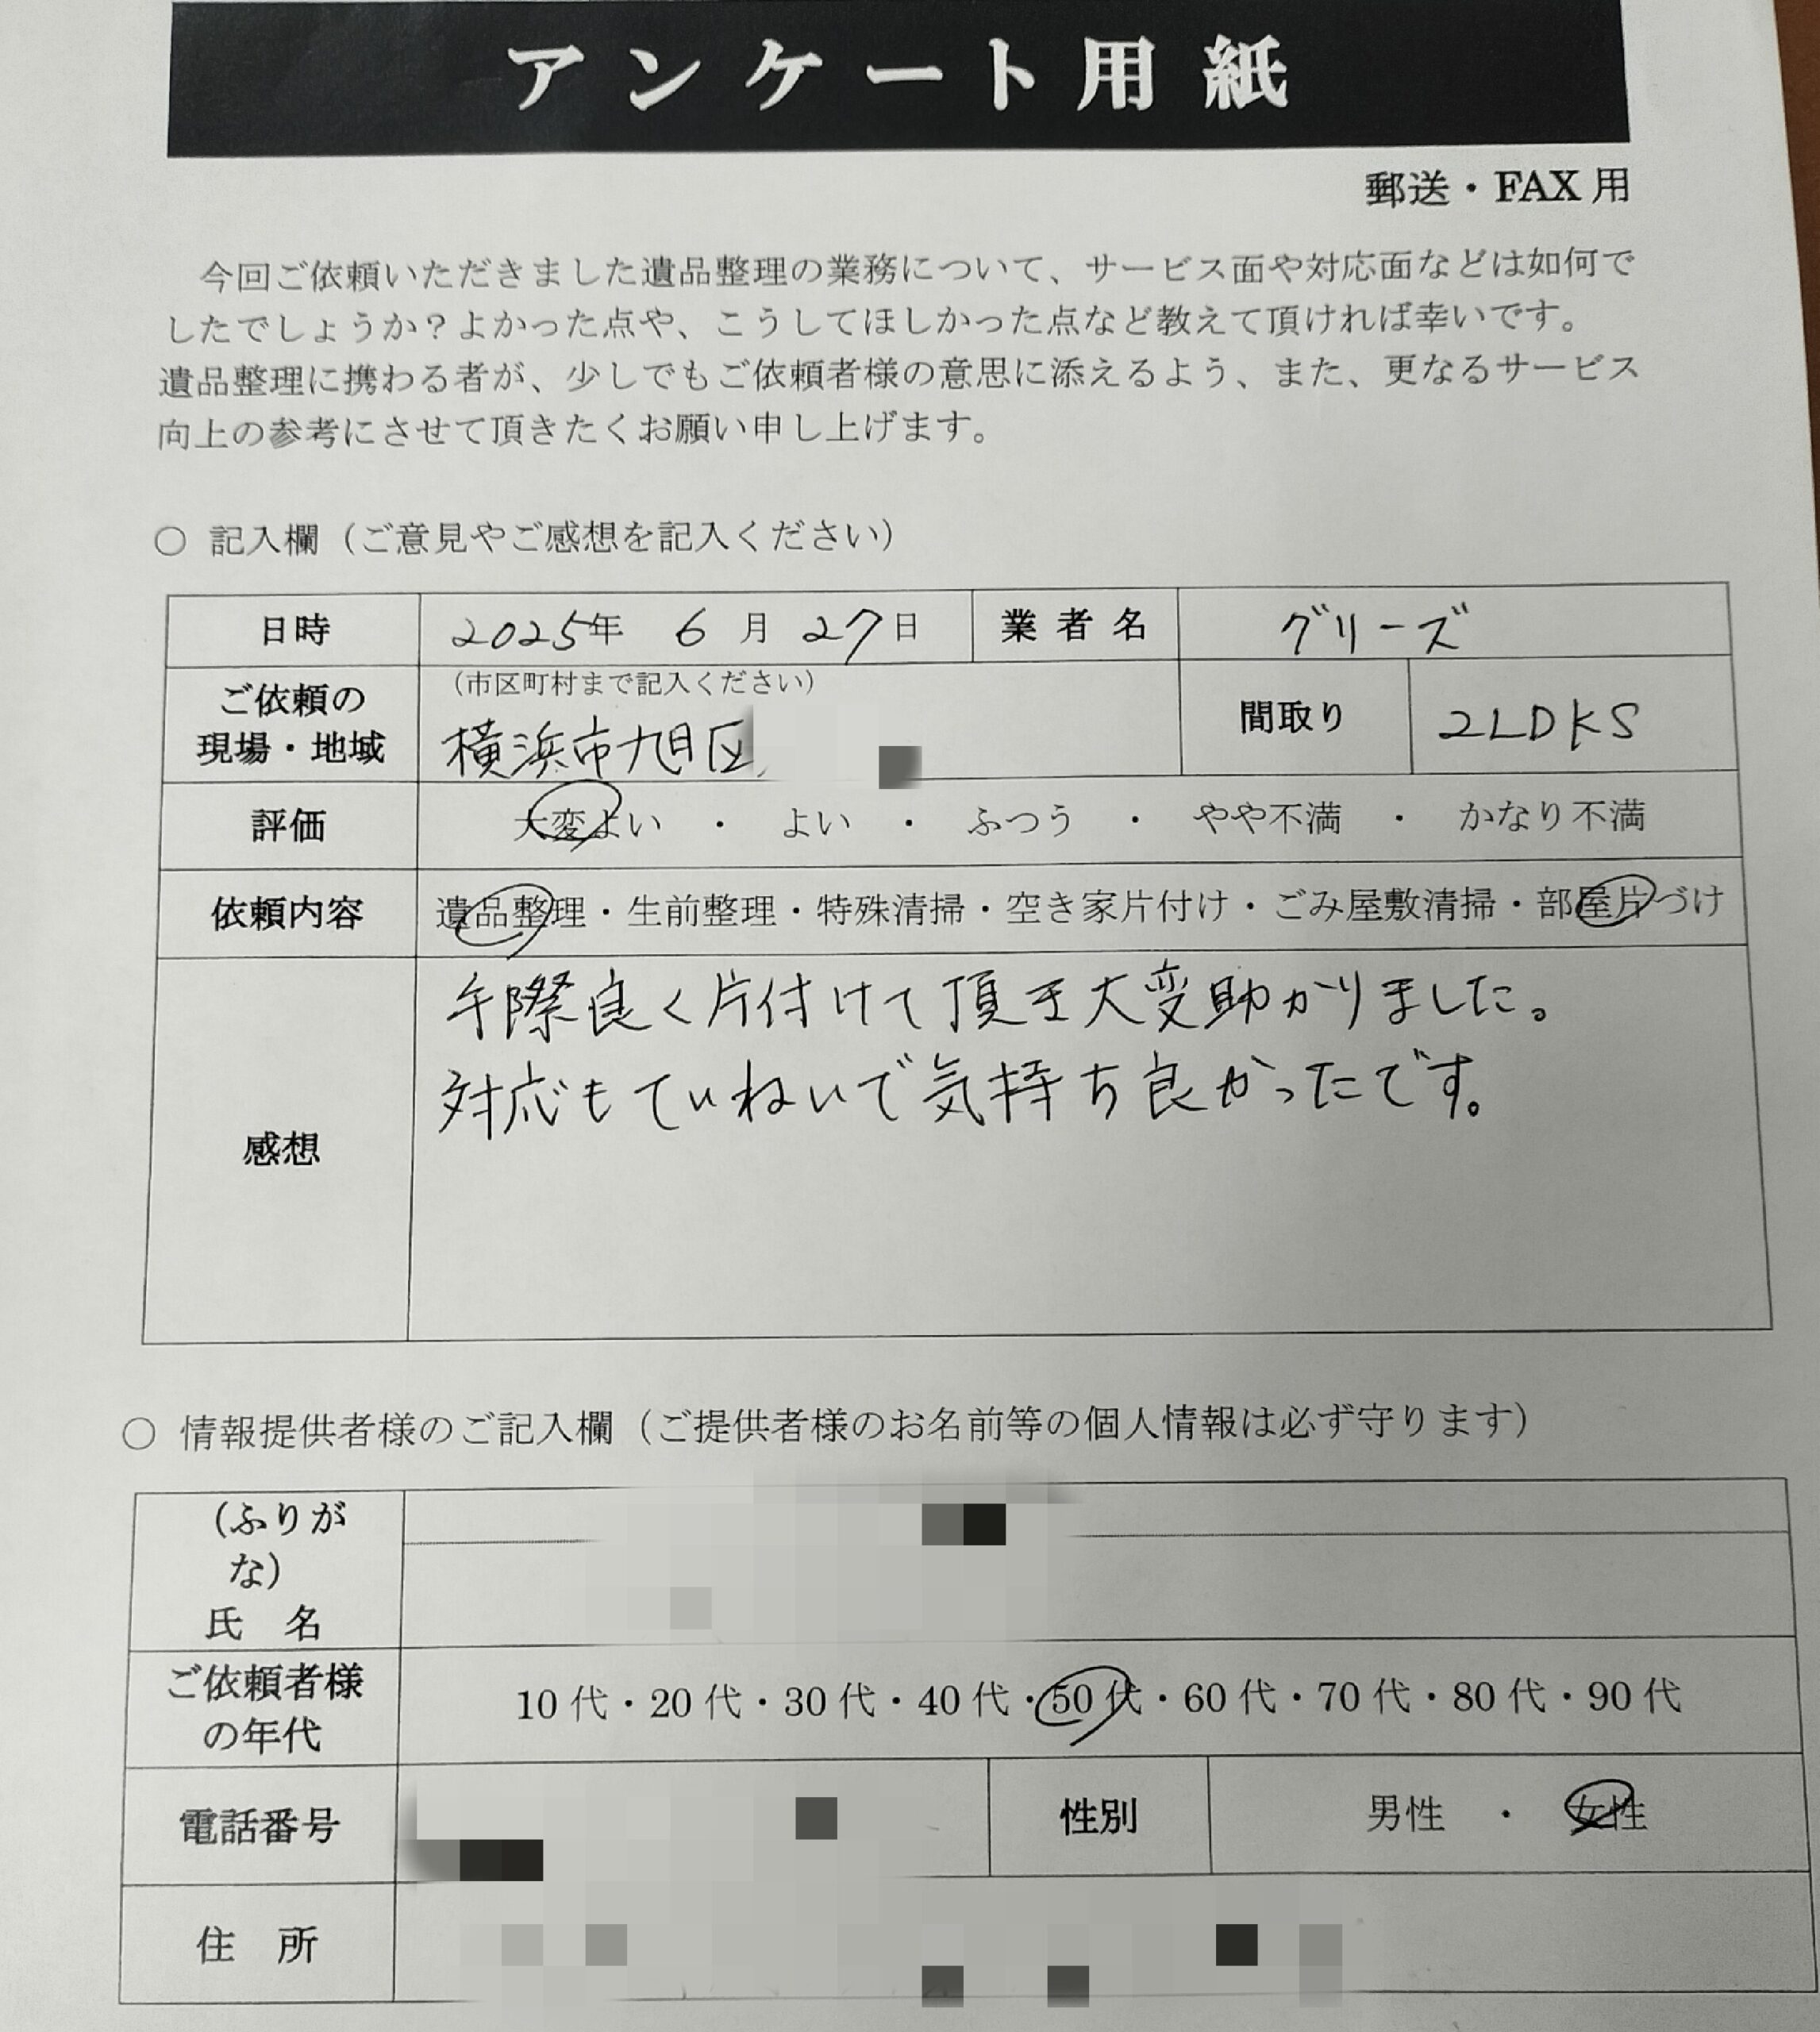 アンケート用紙
郵送・FAX 用
今回ご依頼いただきました遺品整理の業務について、サービス面や対応面などは如何で
したでしょうか？よかった点や、こうしてほしかった点など教えて頂ければ幸いです。
遺品整理に携わる者が、少しでもご依頼者様の意思に添えるよう、また、更なるサービス
向上の参考にさせて頂きたくお願い申し上げます。
○ 記入欄（ご意見やご感想を記入ください）
日時 2025年 6月 27日 業者名 グリーズ
ご依頼の
現場・地域
（市区町村まで記入ください）
横浜市旭区
間取り 2LDKS
評価 大変よい ・ よい ・ ふつう ・ やや不満 ・ かなり不満
依頼内容 遺品整理・生前整理・特殊清掃・空き家片付け・ごみ屋敷清掃・部屋片づけ
感想
手際良く片付けて頂き大変助かりました。
対応もていねいで気持ち良かったです。
○ 情報提供者様のご記入欄（ご提供者様のお名前等の個人情報は必ず守ります）
（ふりが
な）
氏 名
ご依頼者様
の年代
10 代・20 代・30 代・40 代・50 代・60 代・70 代・80 代・90 代
電話番号 性別 男性 ・ 女性
住 所